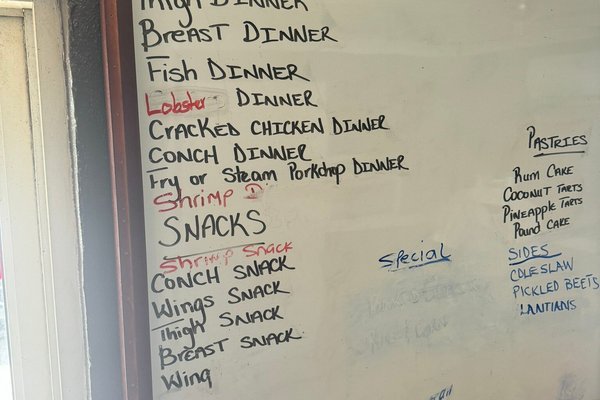 Thigh DINNER
BREAST DINNER
Fish DINNER
Lobster DINNER
CRACKED CHICKEN DINNER
CONCH DINNER
Fry or Steam Porkchop DINNER
Shrimp D
SNACKS
Shrimp Snack
CONCH SNACK
Wings SNACK
Thigh SNACK
BREAST SNACK
Wing
Special
PASTRIES
Rum CAKE
COCONUT TARTS
PINEAPPLE TARTS
Pound CAKE
SIDES
COLESLAW
PICKLED BEETS
LANTIANS